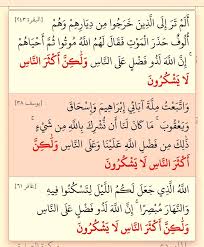 أَلَمْ تَرَ إِلَى الَّذِينَ خَرَجُوا مِن دِيَارِهِمْ وَهُمْ [البقرة ٢٤٣]
أُلُوفٌ حَذَرَ الْمَوْتِ فَقَالَ لَهُمُ اللَّهُ مُوتُوا ثُمَّ أَحْيَاهُمْ
إِنَّ اللَّهَ لَذُو فَضْلٍ عَلَى النَّاسِ وَلَٰكِنَّ أَكْثَرَ النَّاسِ
لَا يَشْكُرُونَ
وَاتَّبَعْتُ مِلَّةَ آبَائِي إِبْرَاهِيمَ وَإِسْحَاقَ [يوسف ٣٨]
وَيَعْقُوبَ ۚ مَا كَانَ لَنَا أَن نُّشْرِكَ بِاللَّهِ مِن شَيْءٍ ۚ
ذَٰلِكَ مِن فَضْلِ اللَّهِ عَلَيْنَا وَعَلَى النَّاسِ وَلَٰكِنَّ
أَكْثَرَ النَّاسِ لَا يَشْكُرُونَ
اللَّهُ الَّذِي جَعَلَ لَكُمُ اللَّيْلَ لِتَسْكُنُوا فِيهِ [غافر ٦١]
وَالنَّهَارَ مُبْصِرًا ۚ إِنَّ اللَّهَ لَذُو فَضْلٍ عَلَى النَّاسِ
وَلَٰكِنَّ أَكْثَرَ النَّاسِ لَا يَشْكُرُونَ